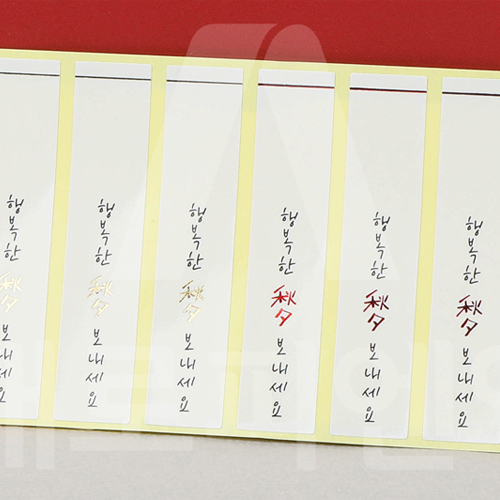 행복한 秋夕 보내세요
행복한 秋夕 보내세요
행복한 秋夕 보내세요
행복한 秋夕 보내세요
행복한 秋夕 보내세요
행복한 秋夕 보내세요